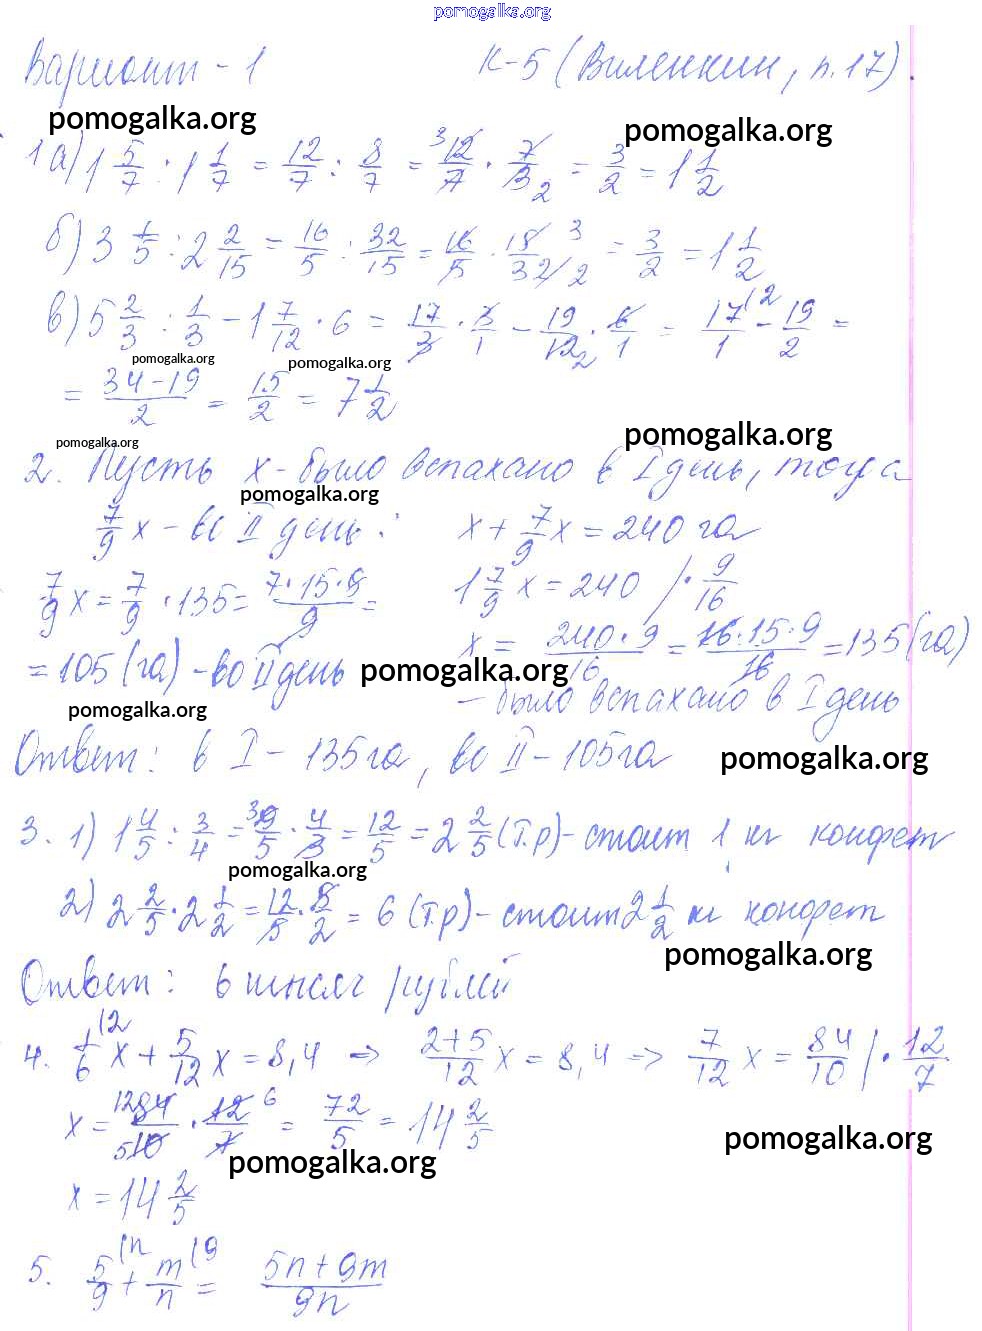 pomogalka.org
Вариант - 1 К-5 (Виленкин, п.17)
pomogalka.org pomogalka.org
1 а) 1 5/7 : 1 1/7 = 12/7 : 8/7 = 12/7 · 7/8 = 3/2 = 1 1/2
б) 3 1/5 : 2 2/15 = 16/5 : 32/15 = 16/5 · 15/32 = 3/2 = 1 1/2
в) 5 2/3 : 1/3 - 1 7/12 · 6 = 17/3 · 3/1 - 19/12 · 6/1 = 17/1 - 19/2 =
pomogalka.org pomogalka.org
= (34-19)/2 = 15/2 = 7 1/2
pomogalka.org pomogalka.org
2. Пусть x - было вспахано в I день, тогда
pomogalka.org
7/9 x - во II день: x + 7/9 x = 240 га
7/9 x = 7/9 · 135 = (7·15·9)/9 = 1 7/9 x = 240 /· 9/16
x = (240·9)/16 = (16·15·9)/16 = 135 (га)
= 105 (га) - во II день pomogalka.org - было вспахано в I день
pomogalka.org
Ответ: в I - 135 га, во II - 105 га pomogalka.org
3. 1) 1 4/5 : 3/4 = 9/5 · 4/3 = 12/5 = 2 2/5 (т.р) - стоит 1 кг конфет
pomogalka.org
2) 2 2/5 · 2 1/2 = 12/5 · 5/2 = 6 (т.р) - стоит 2 1/2 кг конфет
pomogalka.org
Ответ: 6 тысяч рублей
4. 1/6 x + 5/12 x = 8,4 => (2+5)/12 x = 8,4 => 7/12 x = 84/10 /· 12/7
x = 84/10 · 12/7 = 72/5 = 14 2/5
pomogalka.org pomogalka.org
x = 14 2/5
5. 5/9 + m/n = (5n+9m)/9n